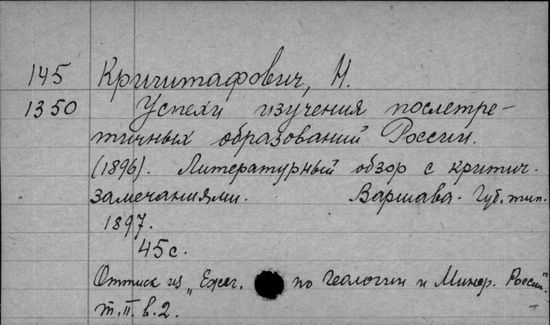 145 Криштафович, Н.
1350 Успехи изучения послетре-
тичных образований России.
(1896). Литературный обзор с критич.
замечаниями. Варшава. Губ. тип.
1897.
45 с.
Оттиск из "Ежег. по Геологии и Минер. России".
т. II. в. 2.